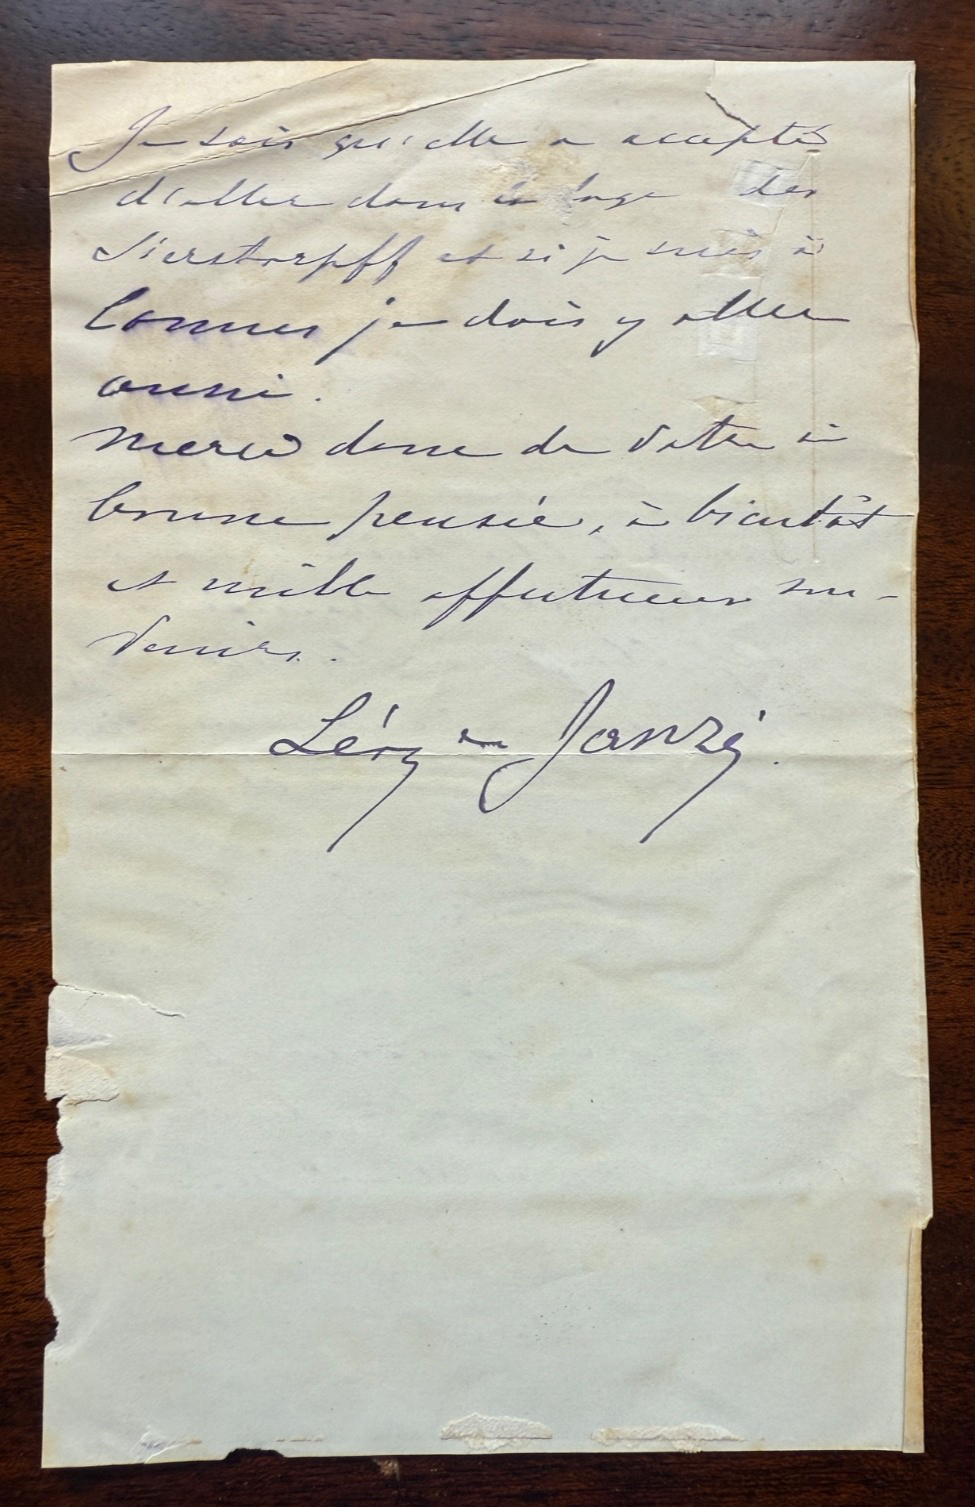 Je sais qu'elle a accepté
d'aller dans la loge des
Sierstorpff et si je suis à
Cannes je dois y aller
aussi.
merci donc de votre
bonne pensée, à bientôt
et mille affectueux sou-
venirs.
Jανzé.